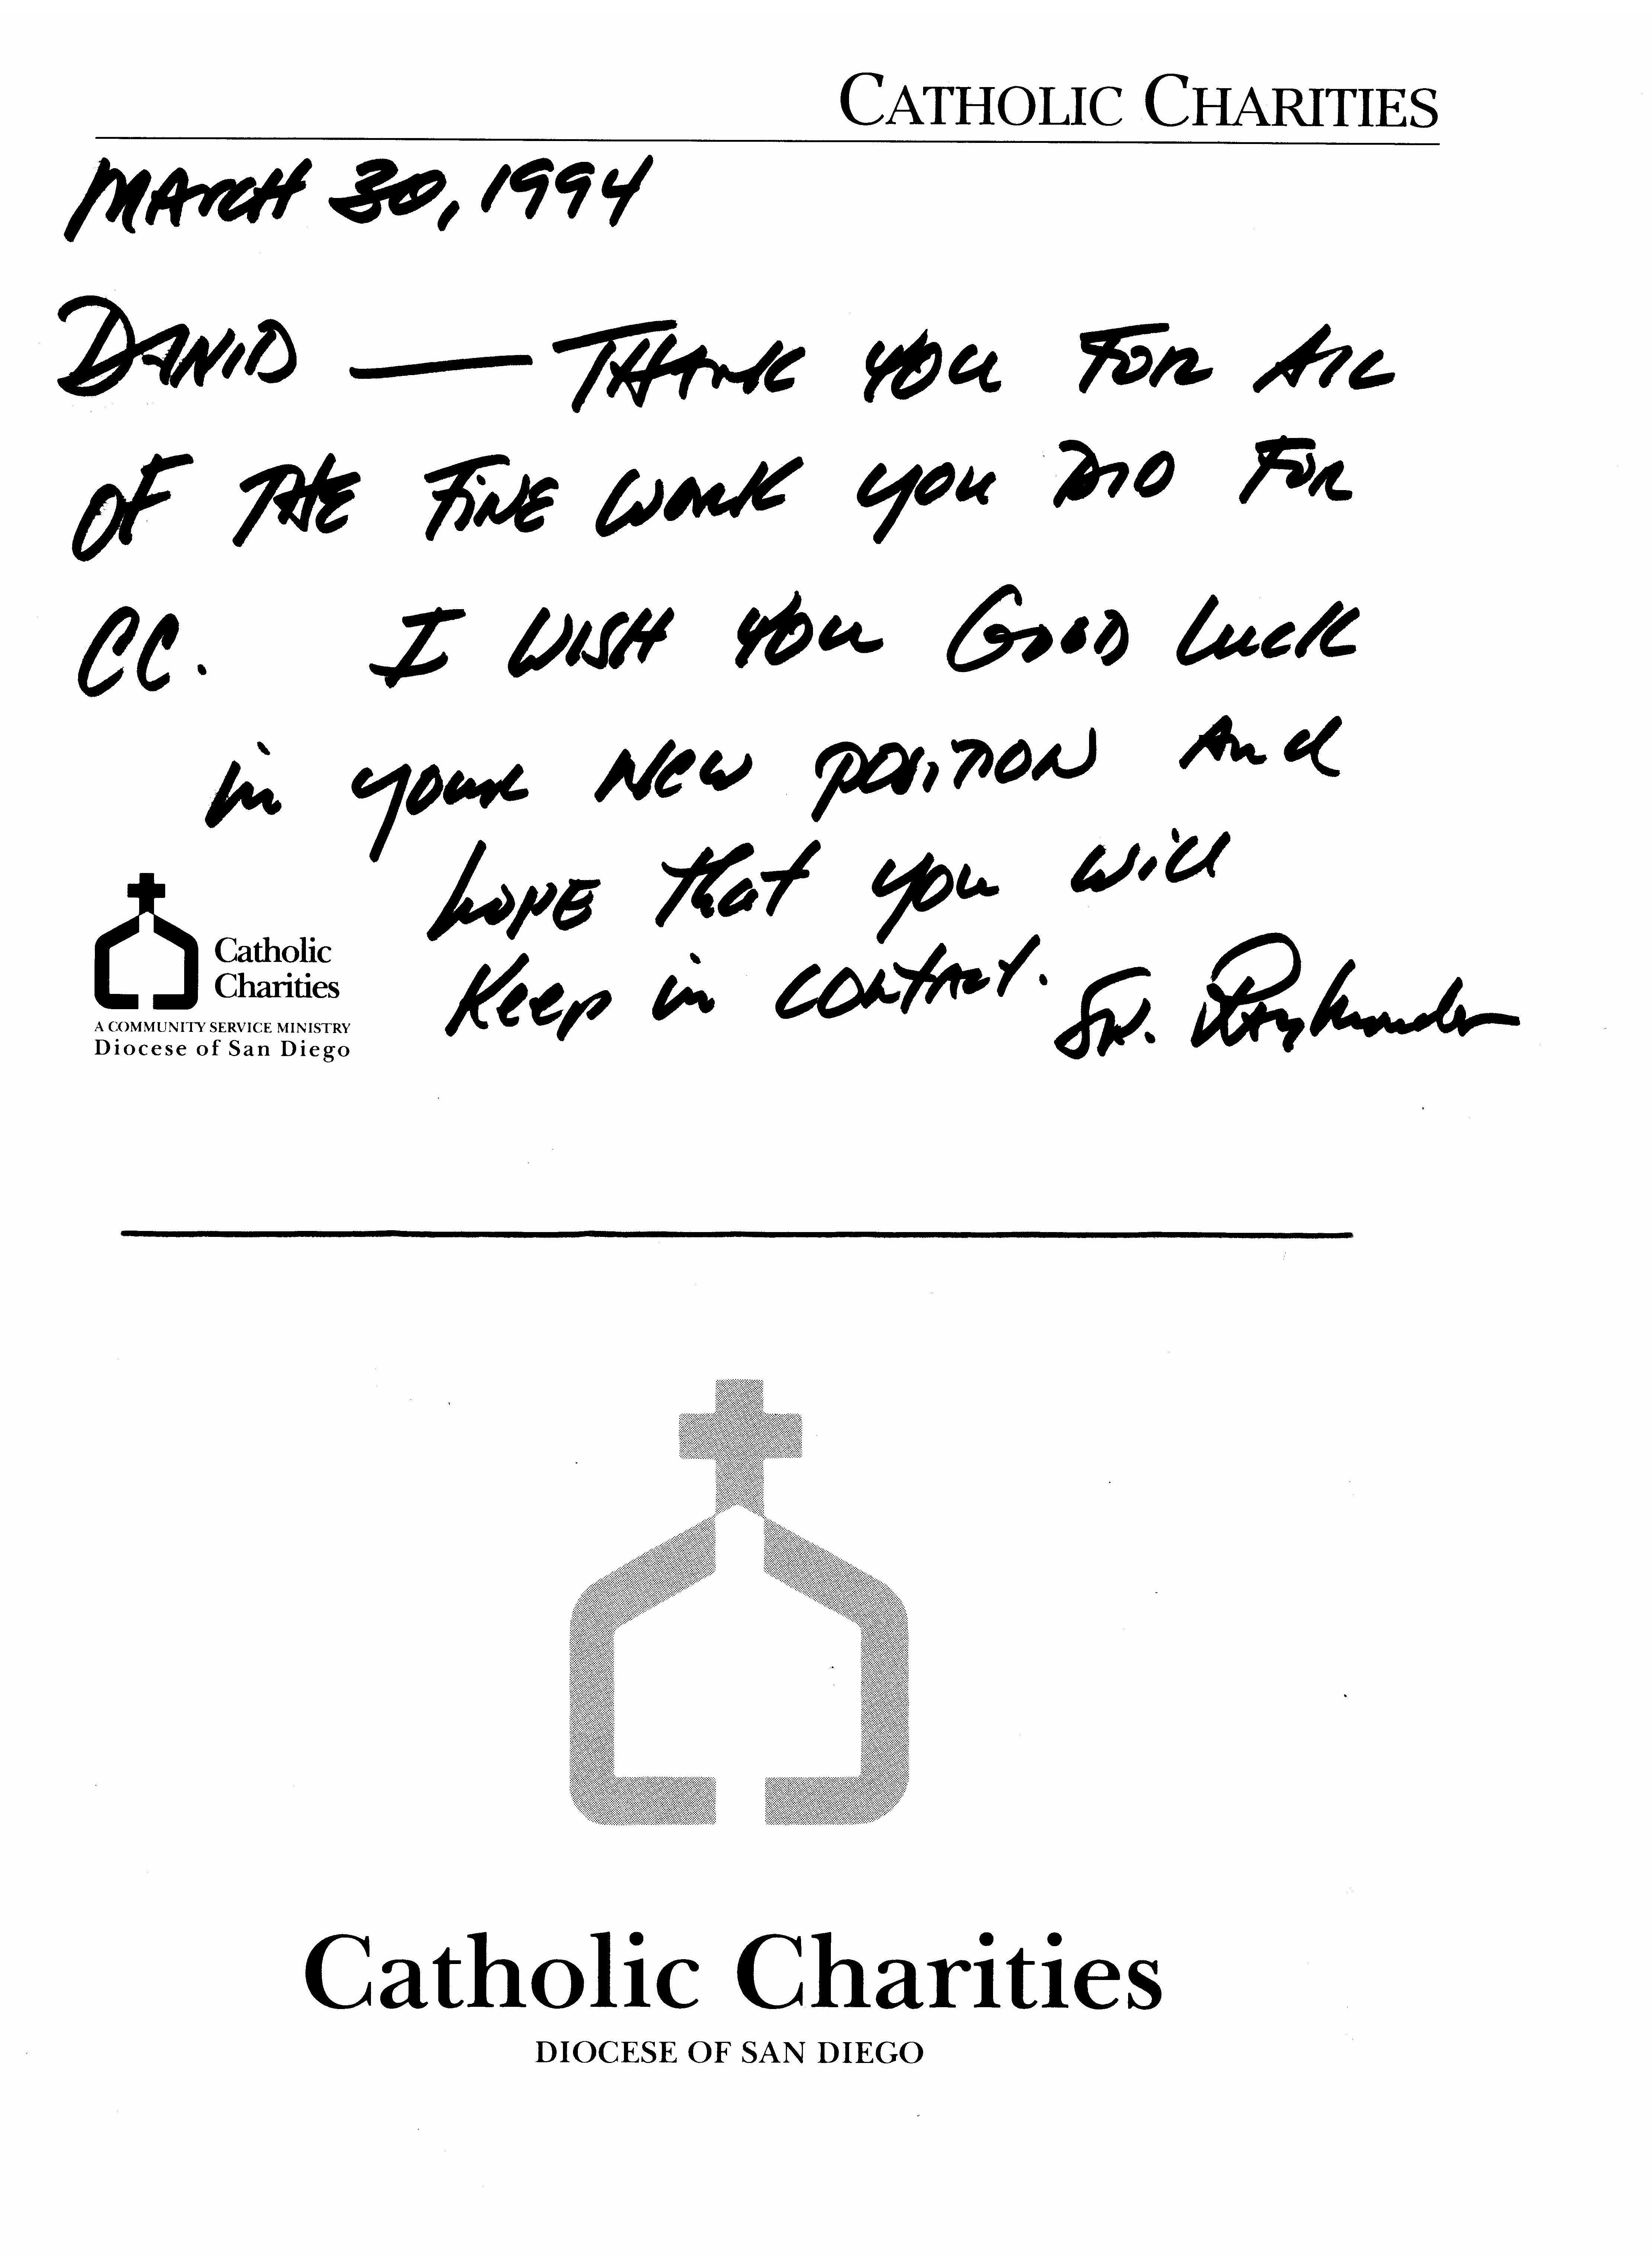 CATHOLIC CHARITIES
MARCH 30, 1994
DAVID — THANK YOU FOR ALL
OF THE FINE WORK YOU DID FOR
CC. I WISH YOU GOOD LUCK
in your New POSITION And
hOPE that you will
Keep in CONTACT. Sr. RayMonda
Catholic
Charities
A COMMUNITY SERVICE MINISTRY
Diocese of San Diego
Catholic Charities
DIOCESE OF SAN DIEGO